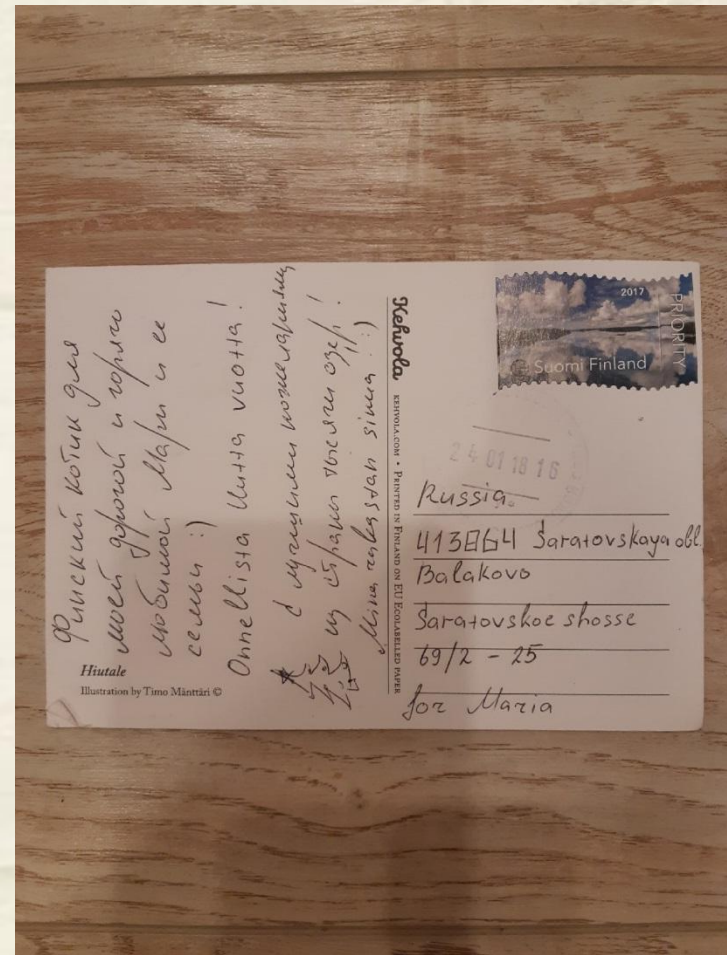 Финский котик для
моей дорогой и горячо
любимой Мари и ее
семьи :)
Onnellista Uutta vuotta!
С лучшими пожеланиями
из страны тысячи озер!
Minä rakastan sinua :)
Hiutale
Illustration by Timo Mänttäri ©
Kehvola
KEHVOLA.COM • PRINTED IN FINLAND ON EU ECOLABELLED PAPER
2017
PRIORITY
Suomi Finland
24 01 18 16
Russia
413864 Saratovskaya obl
Balakovo
Saratovskoe shosse
69/2 - 25
for Maria